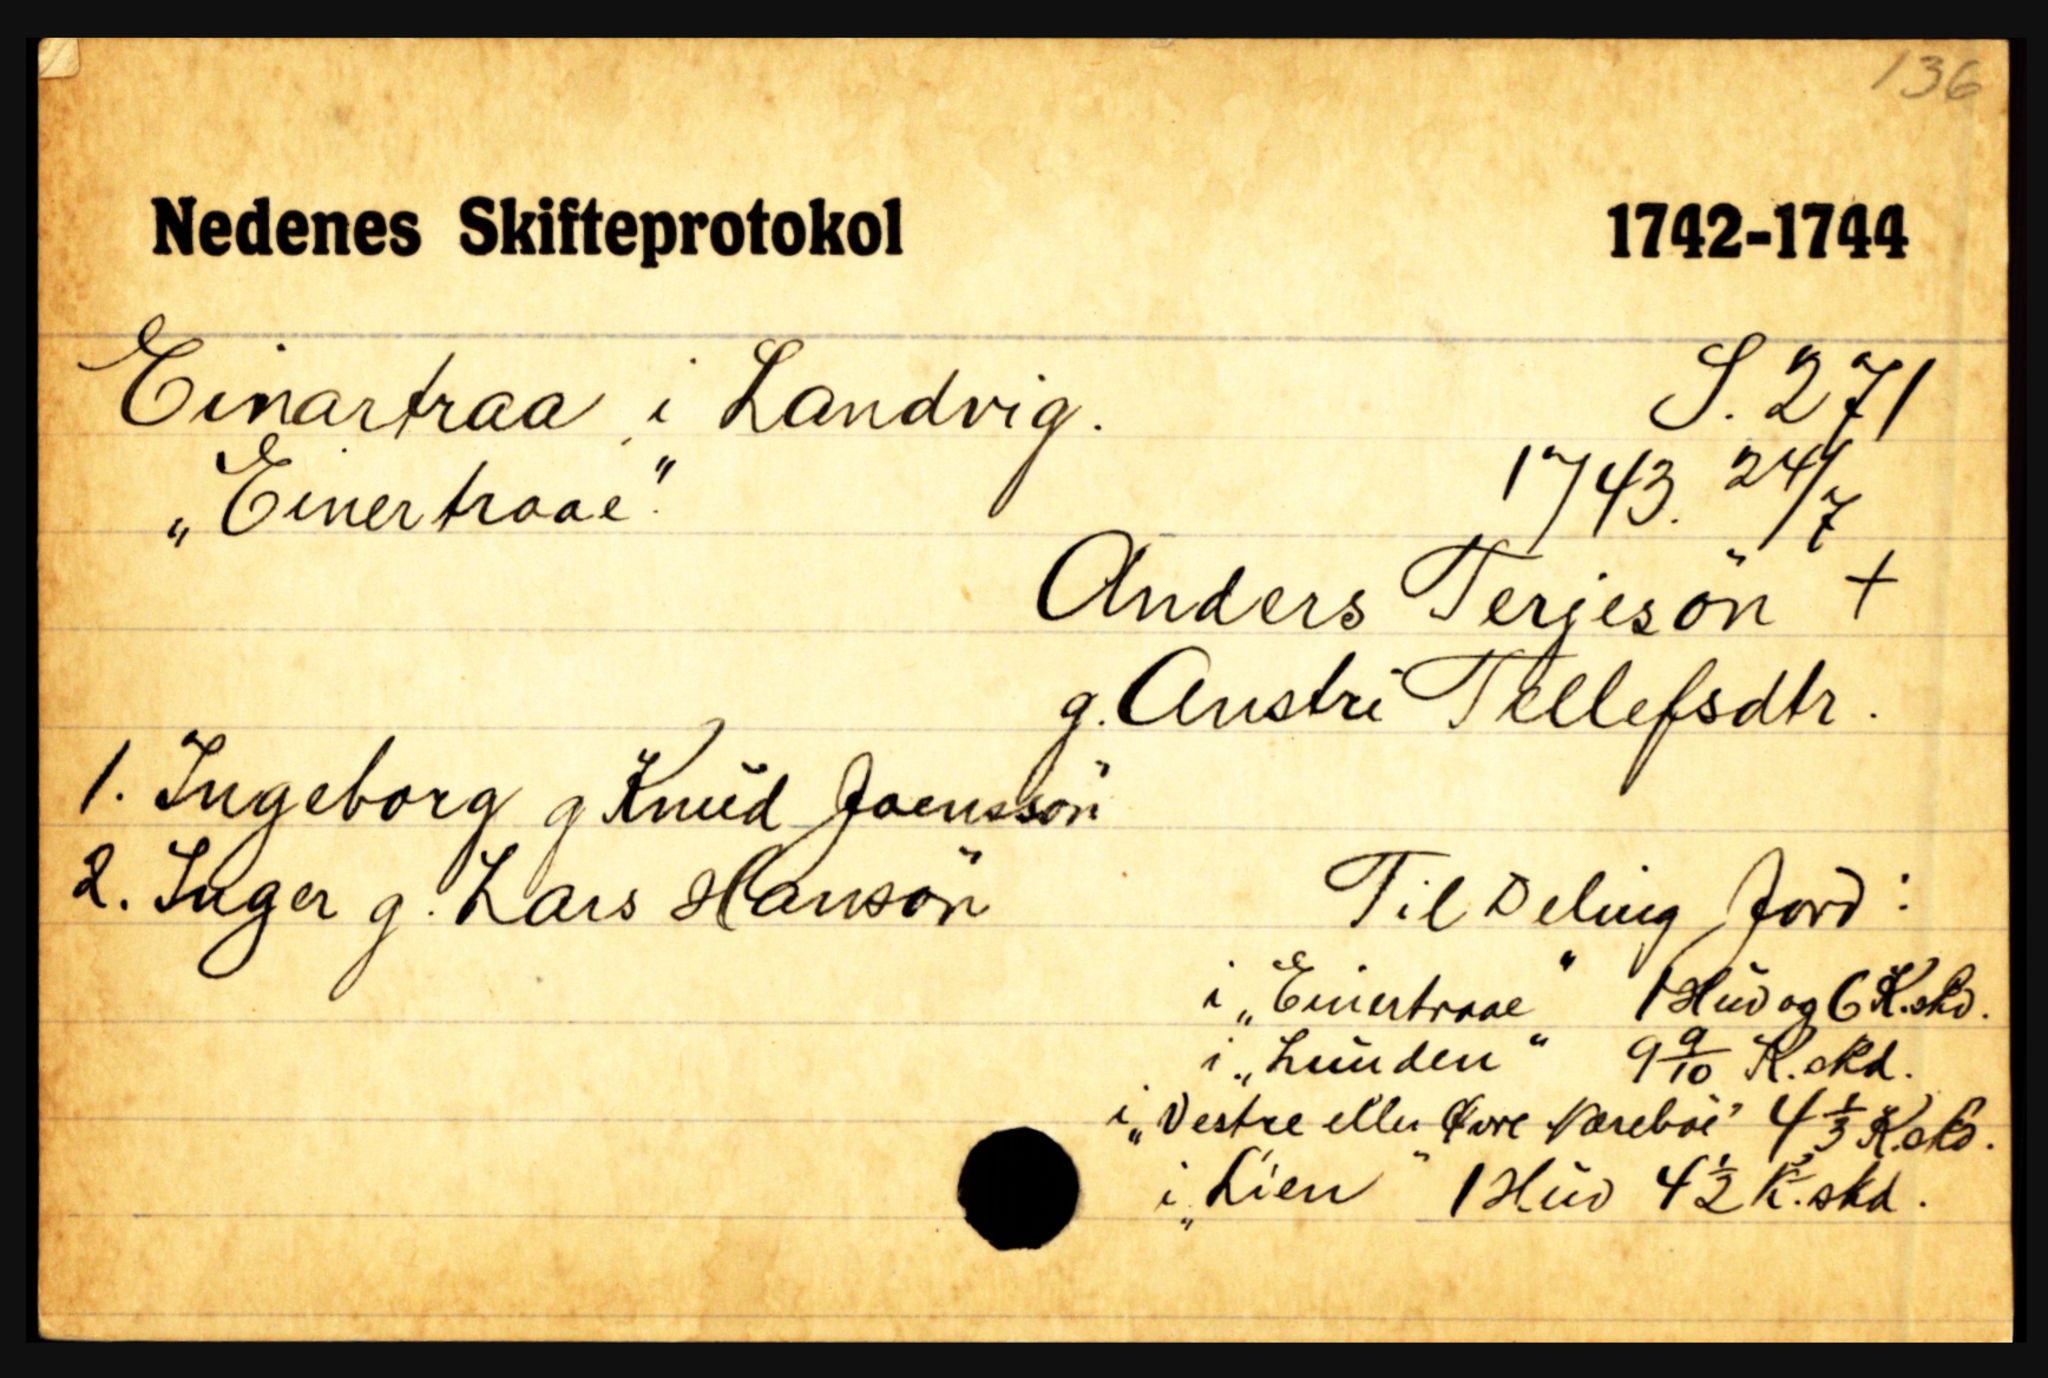 136
Nedenes Skifteprotokol 1742-1744
Einartraa i Landvig. S. 271
„Einertraae". 1743. 24/7
Anders Terjesön +
g. Anstri Tellefsdtr.
1. Ingeborg g Knud Joenssön
2. Inger g. Lars Hansön
Til Deling Jord:
i „Einertraae" 1 Hud og 6 K.skd.
i „Lunden" 9 9/10 K.skd.
i „Vestre eller Øvre 4 1/3 K.skd.
i „Lien" 1 Hud 4 1/2 K.skd.